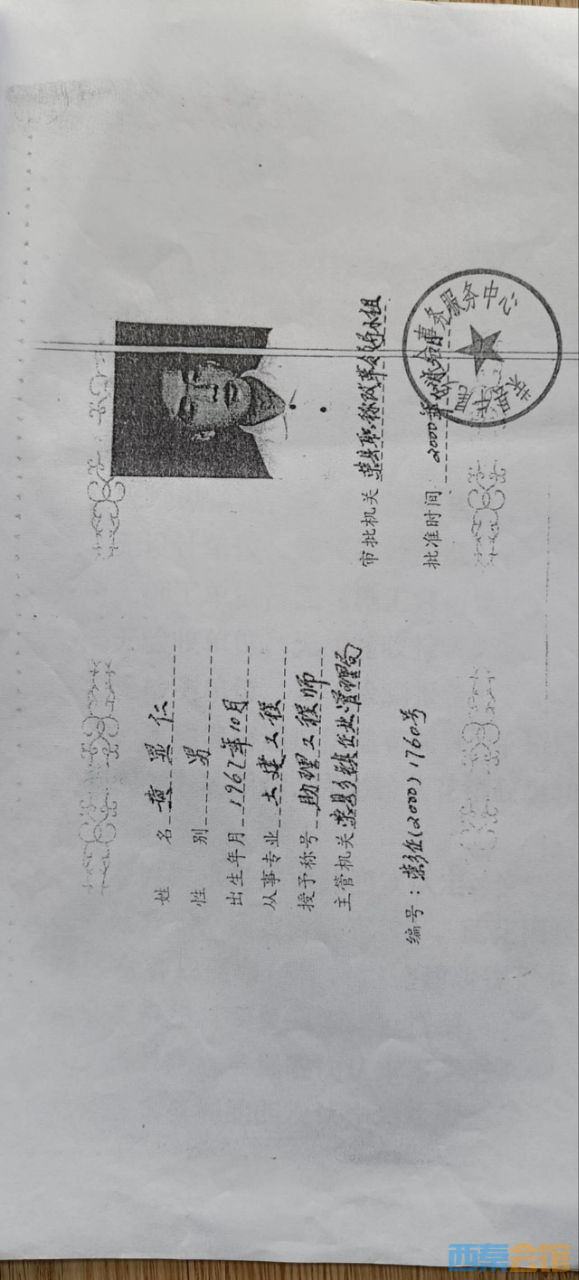 姓 名 黄显仁
性 别 男
出生年月 1967年10月
从事专业 土建工程
授予称号 助理工程师
主管机关 荣县乡镇企业管理局
编号：荣乡企(2000)1760号
审批机关 荣县职称改革领导小组
批准时间 2000年
事务服务中心
荣县
西秦会馆